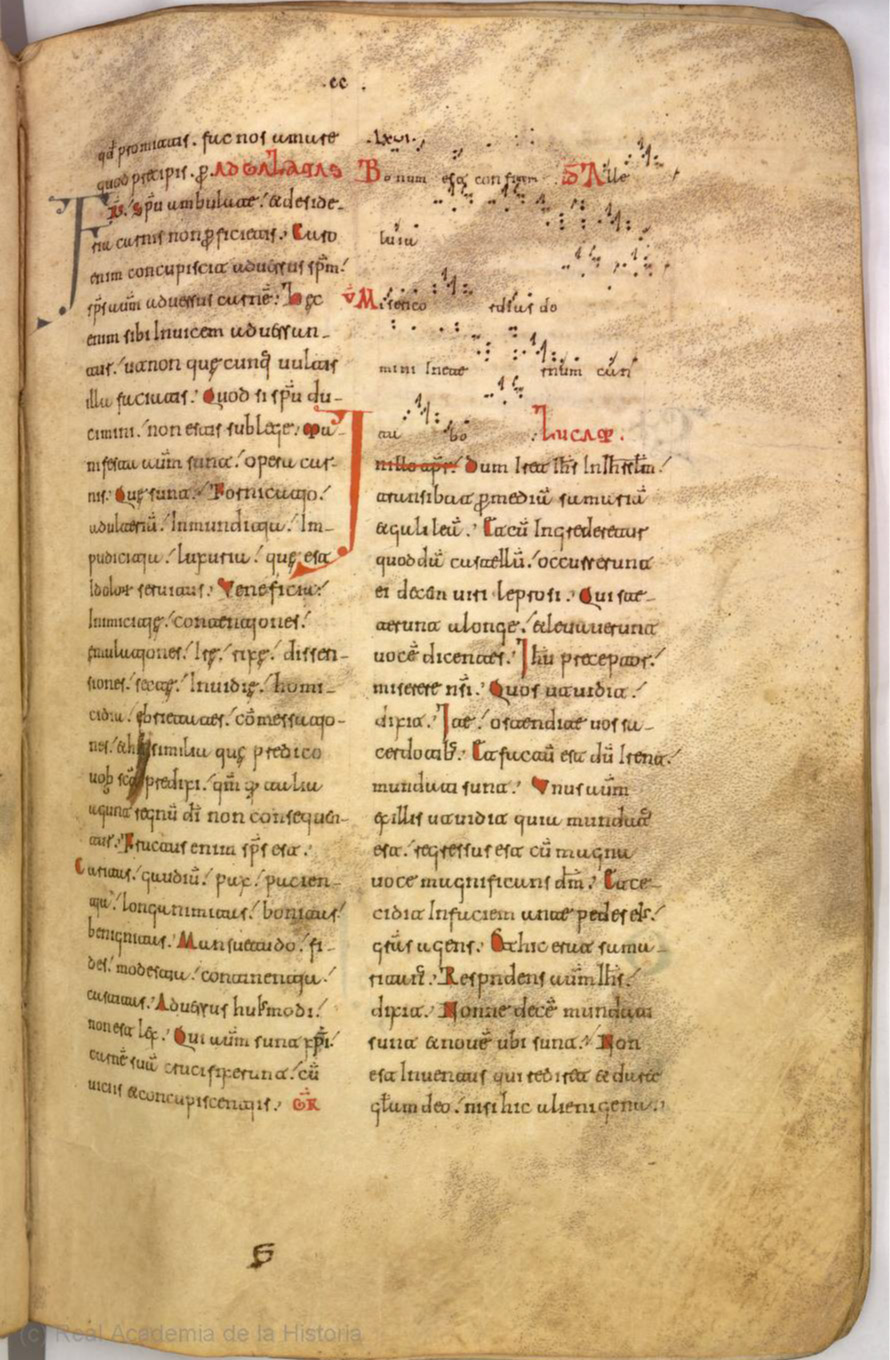 .cc.
qd promictis. fac nos amare
quod precipis. ꝑ. AD GALATAS
Fr̄s. Spū ambulate. & deside-
ria carnis non ꝑficietis. Caro
enim concupiscit adversus spm̄.
sps̄ aūm adversus carnē. Hęc
enim sibi Invicem adversan-
tur. ut non quęcunq̄ vultis
illa faciatis. Quod si spū du-
cimini. non estis sub lege. Ma-
nifesta aūm sunt. opera car-
nis. Quę sunt. Fornicatio.
adulteriū. Inmunditia. Im-
pudicitia. luxuria. quę est
Idolor servitus. Veneficia.
Inimicitię. contentiones.
emulationes. Irę. rixę. dissen-
siones. sectę. Invidię. homi-
cidia. ebrietates. cōmessatio-
nes. & his similia quę predico
vob predixi. qm̄ q talia
agunt regnū dī non consequen-
tur. Fructus enim sps̄ est.
Caritas. gaudiū. pax. pacien-
tia. longanimitas. bonitas.
benignitas. Mansuetudo. fi-
des. modestia. continentia.
castitas. Adversus hui'modi.
non est lex. Qui aūm sunt xpī.
carnē suā crucifixerunt. cū
viciis & concupiscentiis. GR
Bonum est confiteri Alle
luia
V̄ Miserico rdias do
mini In eter num can
ta bo LUCAM.
In illo tpr̄. Dum Iret Ihs̄ In Ihrslm̄.
transibat ꝑ mediū samariā
& galileā. Et cū Ingrederetur
quoddā castellū. occurrerunt
ei decem viri leprosi. Qui ste-
terunt a longe. & levaverunt
vocē dicentes. Ihū preceptor.
miserere nr̄i. Quos ut vidit.
dixit. Ite. ostendite vos sa-
cerdotib'. Et factū est dū Irent.
mundati sunt. Unus aūm
ex illis ut vidit quia mundat'
est. regressus est cū magna
voce magnificans dm̄. Et ce-
cidit In faciem ante pedes ei'.
grā̄s agens. Et hic erat sama-
ritan'. Respndens aūm Ihs̄.
dixit. Nonne decē mundati
sunt & novē ubi sunt. Non
est Inventus qui rediret & daret
gl̄am deo. nisi hic alienigena.
(c) Real Academia de la Historia